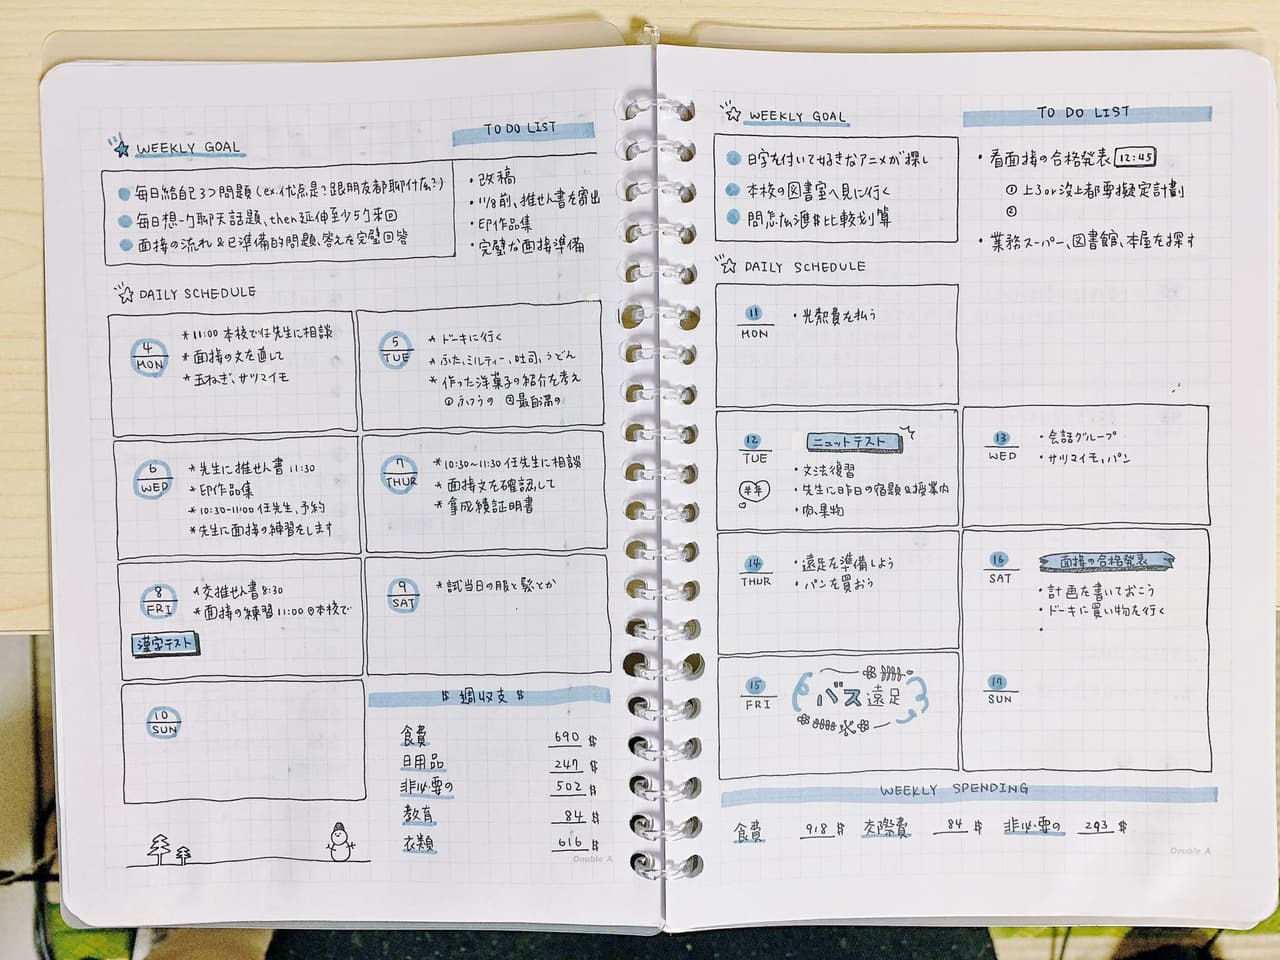 WEEKLY GOAL
每日給自己3つ問題(ex.优点是?跟朋友都聊什么?)
每日想一句聊天話題、then延伸至少5句來回
面接の流れ&已準備的問題、答えを完璧回答
TO DO LIST
・改稿
・11/8前、推せん書を寄出
・印作品集
・完璧な面接準備
DAILY SCHEDULE
4
MON
*11:00 本校で任先生に相談
*面接の文を直して
*玉ねぎ、サツマイモ
5
TUE
*ドーキに行く
*ふた、ミルティー、吐司、うどん
*作った洋菓子の紹介を考え
①ふつうの ②最自滿の
6
WED
*先生に推せん書 11:30
*印作品集
*10:30-11:00 任先生、予約
*先生に面接の練習をします
7
THUR
*10:30~11:30 任先生に相談
*面接文を確認して
*拿成績証明書
8
FRI
*交推せん書 8:30
*面接の練習 11:00@本校で
漢字テスト
9
SAT
*試当日の服と髪とか
10
SUN
$ 週収支 $
食費 690 $
日用品 247 $
非必要の 502 $
教育 84 $
衣類 616 $
Double A
WEEKLY GOAL
日字を付いて好きなアニメが探し
本校の図書室へ見に行く
問怎么滙$比較划算
TO DO LIST
・看面接の合格発表 12:45
①上3or沒上都要擬定計劃
②
・業務スーパー、図書館、本屋を探す
DAILY SCHEDULE
11
MON
・光熱費を払う
12
TUE
ニュットテスト
・文法復習
・先生に昨日の宿題&授業内
・肉、果物
13
WED
・会話グループ
・サツマイモ、パン
14
THUR
・遠足を準備しよう
・パンを買おう
15
FRI
バス遠足
16
SAT
面接の合格発表
・計画を書いておこう
・ドーキに買い物を行く
・
17
SUN
WEEKLY SPENDING
食費 918 $ 交際費 84 $ 非必要の 293 $
Double A